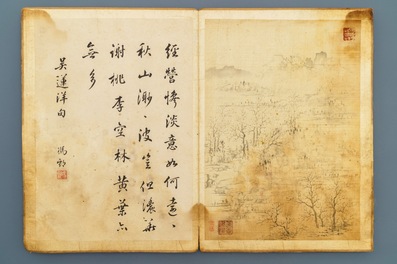 經營慘淡意如何遠、
秋山渺、波豈但濃華
謝桃李空林黃葉亦
無多
吳蓮洋句